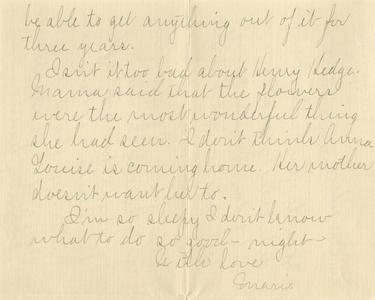 be able to get anything out of it for
three years.
Isn't it too bad about Henry Hedge.
Mama said that the flowers
were the most wonderful thing
she had seen. I don't think Anna
Louise is coming home. Her mother
doesn't want her to.
I'm so sleepy I don't know
what to do so good-night-
With love
Marie